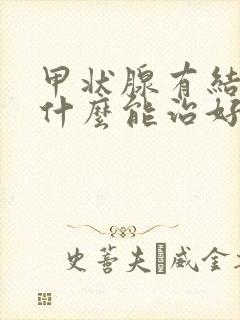 甲状腺有結
什麼能治好
史蒂夫 威金